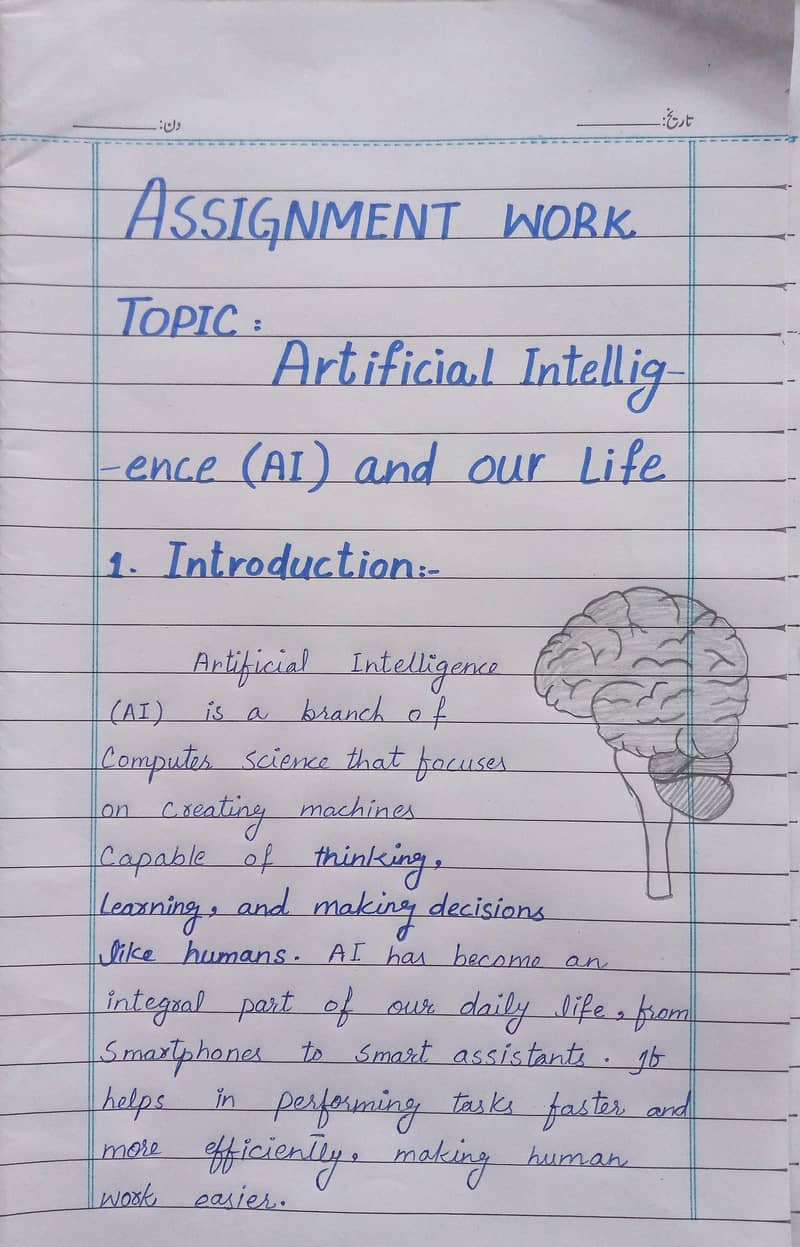 دن: تاریخ:
ASSIGNMENT WORK
TOPIC:
Artificial Intellig-
-ence (AI) and our Life
1. Introduction:-
Artificial Intelligence
(AI) is a branch of
Computer science that focuses
on creating machines
Capable of thinking,
learning, and making decisions
like humans. AI has become an
integral part of our daily life, from
Smartphones to smart assistants. It
helps in performing tasks faster and
more efficiently, making human
work easier.